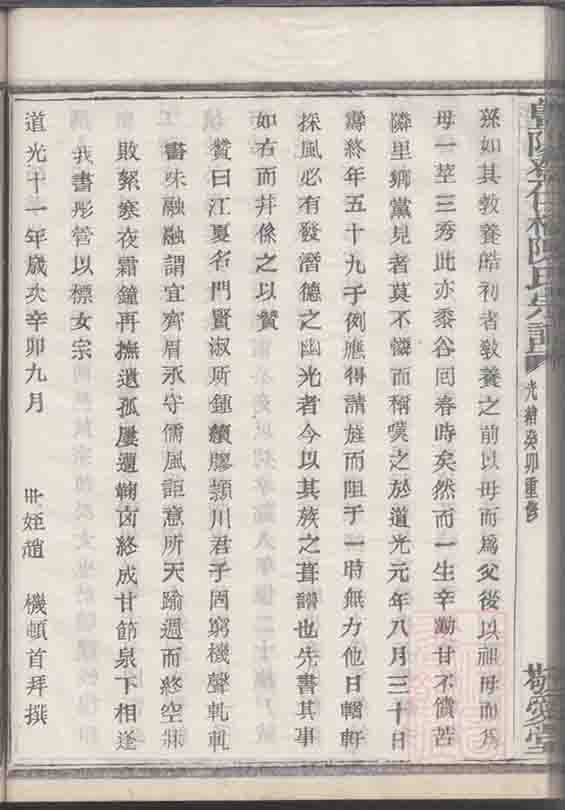 陳氏宗譜
光緒癸卯重修
敬愛堂
孫如其教養皓初者教養之前以母而為父後以祖母而為
母一莖三秀此亦黍谷囘春時矣然而一生辛勤甘不償苦
隣里鄉黨見者莫不憐而稱嘆之於道光元年八月三十日
壽終年五十九于例應得請旌而阻于一時無力他日輶軒
採風必有發潛德之幽光者今以其族之葺譜也先書其事
如右而并係之以贊
贊曰江夏名門賢淑所鍾續膠潁川君子固窮機聲軋軋
書味融融謂宜齊眉永守儒風詎意所天踰週而終空牀
敗絮寒夜霜鐘再撫遺孤屢遭鞠凶終成甘節泉下相逢
我書彤管以標女宗
道光十一年歲次辛卯九月 世姪趙 機頓首拜撰